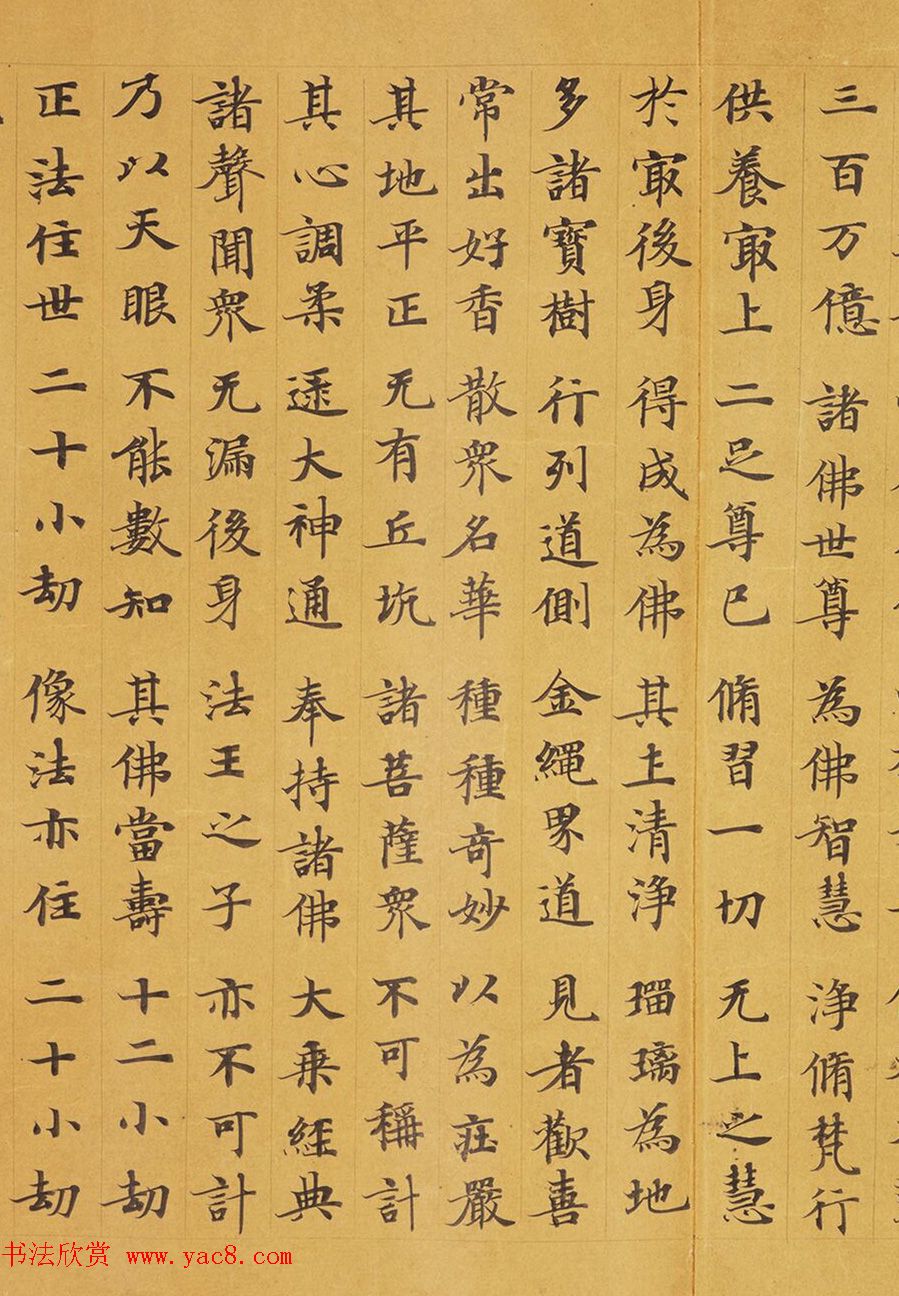 三百万億 諸佛世尊 為佛智慧 浄脩梵行
供養㝡上 二足尊已 脩習一切 无上之慧
於㝡後身 得成為佛 其土清浄 瑠璃為地
多諸寶樹 行列道側 金繩界道 見者歡喜
常出好香 散衆名華 種種奇妙 以為莊嚴
其地平正 无有丘坑 諸菩薩衆 不可稱計
其心調柔 逮大神通 奉持諸佛 大乗經典
諸聲聞衆 无漏後身 法王之子 亦不可計
乃以天眼 不能數知 其佛當壽 十二小劫
正法住世 二十小劫 像法亦住 二十小劫
书法欣赏 www.yac8.com